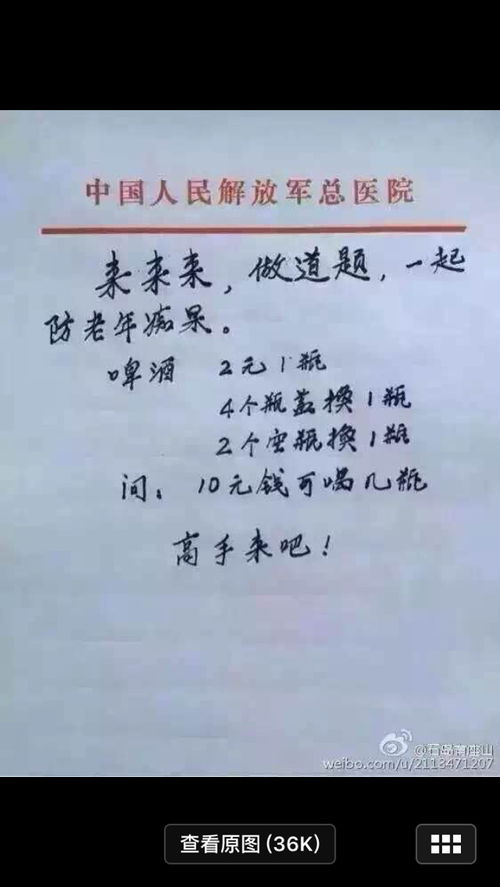 中国人民解放军总医院
来来来，做道题，一起
防老年痴呆。
啤酒 2元1瓶
4个瓶盖换1瓶
2个空瓶换1瓶
问：10元钱可喝几瓶
高手来吧！
weibo.com/u/2113471207
查看原图(36K)